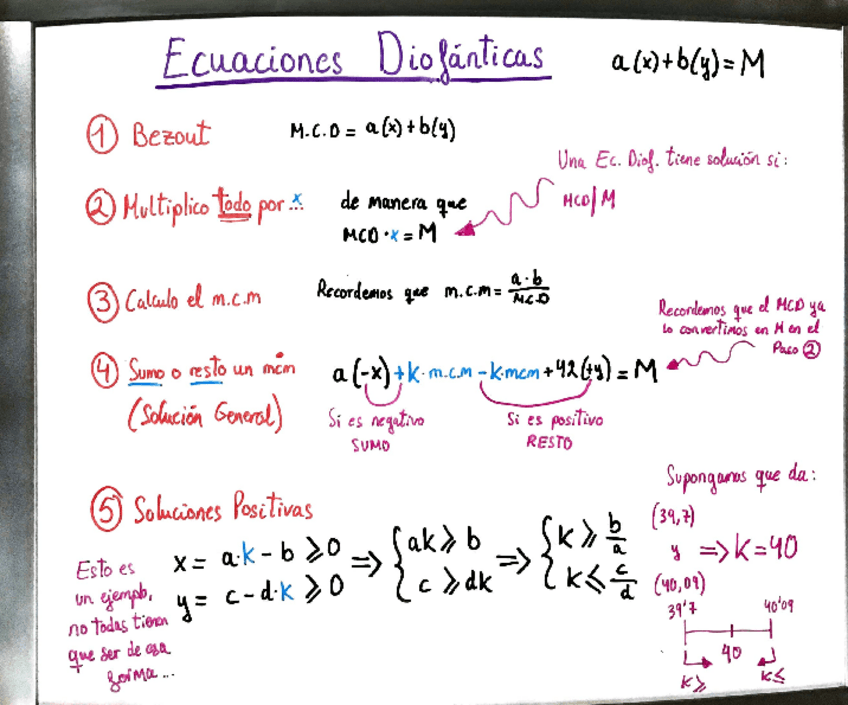 Ecuaciones Diofánticas a(x)+b(y)=M
① Bezout M.C.D = a(x)+b(y)
Una Ec. Diof. tiene solución si:
MCD/M
② Multiplico todo por x... de manera que
MCD·x = M
③ Calculo el m.c.m Recordemos que m.c.m = a·b / M.C.D
Recordemos que el MCD ya
lo convertimos en M en el
Paso ②
④ Sumo o resto un mcm a(-x)+k·m.c.m -k·mcm+42(+y) = M
(Solución General)
Si es negativo
SUMO
Si es positivo
RESTO
⑤ Soluciones Positivas
Esto es
un ejemplo,
no todas tienen
que ser de esa
forma...
x = a·k - b ⩾ 0 => { ak ⩾ b => { k ⩾ b/a
y = c - d·k ⩾ 0 { c ⩾ dk { k ⩽ c/d
Supongamos que da:
(39,7)
y => k=40
(40,09)
39'7 40'09
40
k⩾ k≤